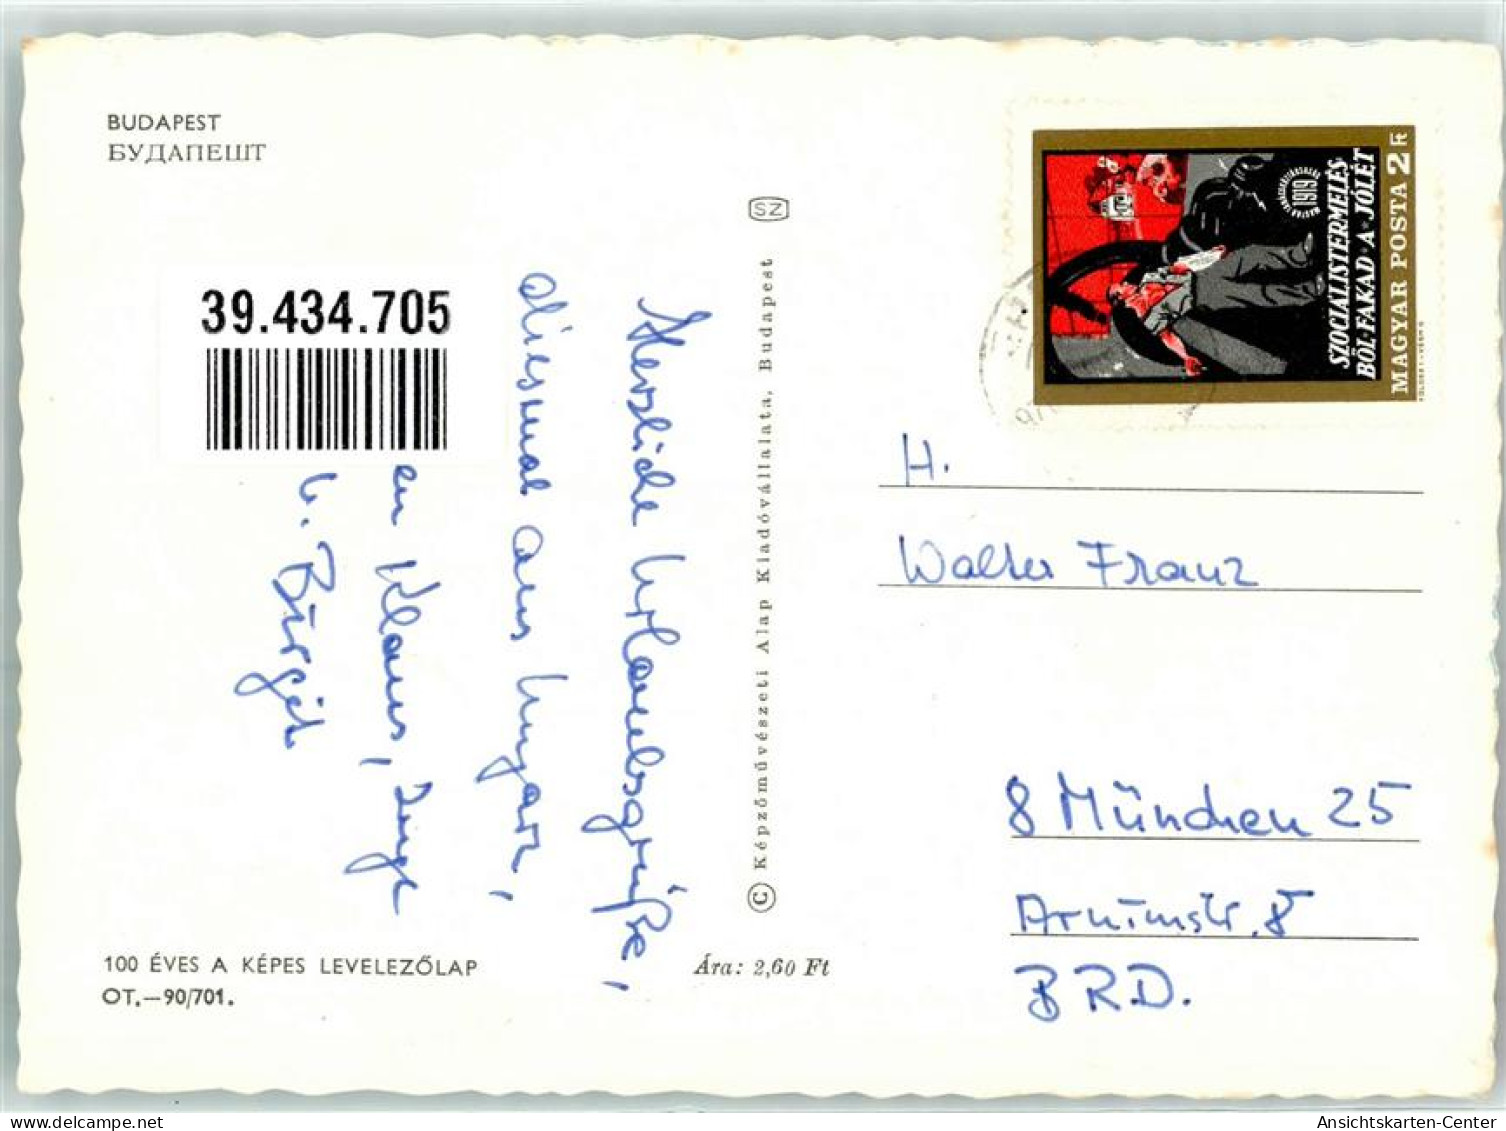 BUDAPEST
БУДАПЕШТ
39.434.705
Herzliche Urlaubsgrüße,
diesmal aus Ungarn,
en Klaus, Inge
u. Birgit
100 ÉVES A KÉPES LEVELEZŐLAP
OT.—90/701.
Ára: 2,60 Ft
© Képzőművészeti Alap Kiadóvállalata, Budapest
SZ
SZOCIALISTERMELÉS-
BŐL·FAKAD·A·JÓLÉT
MAGYAR POSTA 2 Ft
1919
H.
Walter Franz
8 München 25
Arnimstr. 8
BRD.
Ansichtskarten-Center